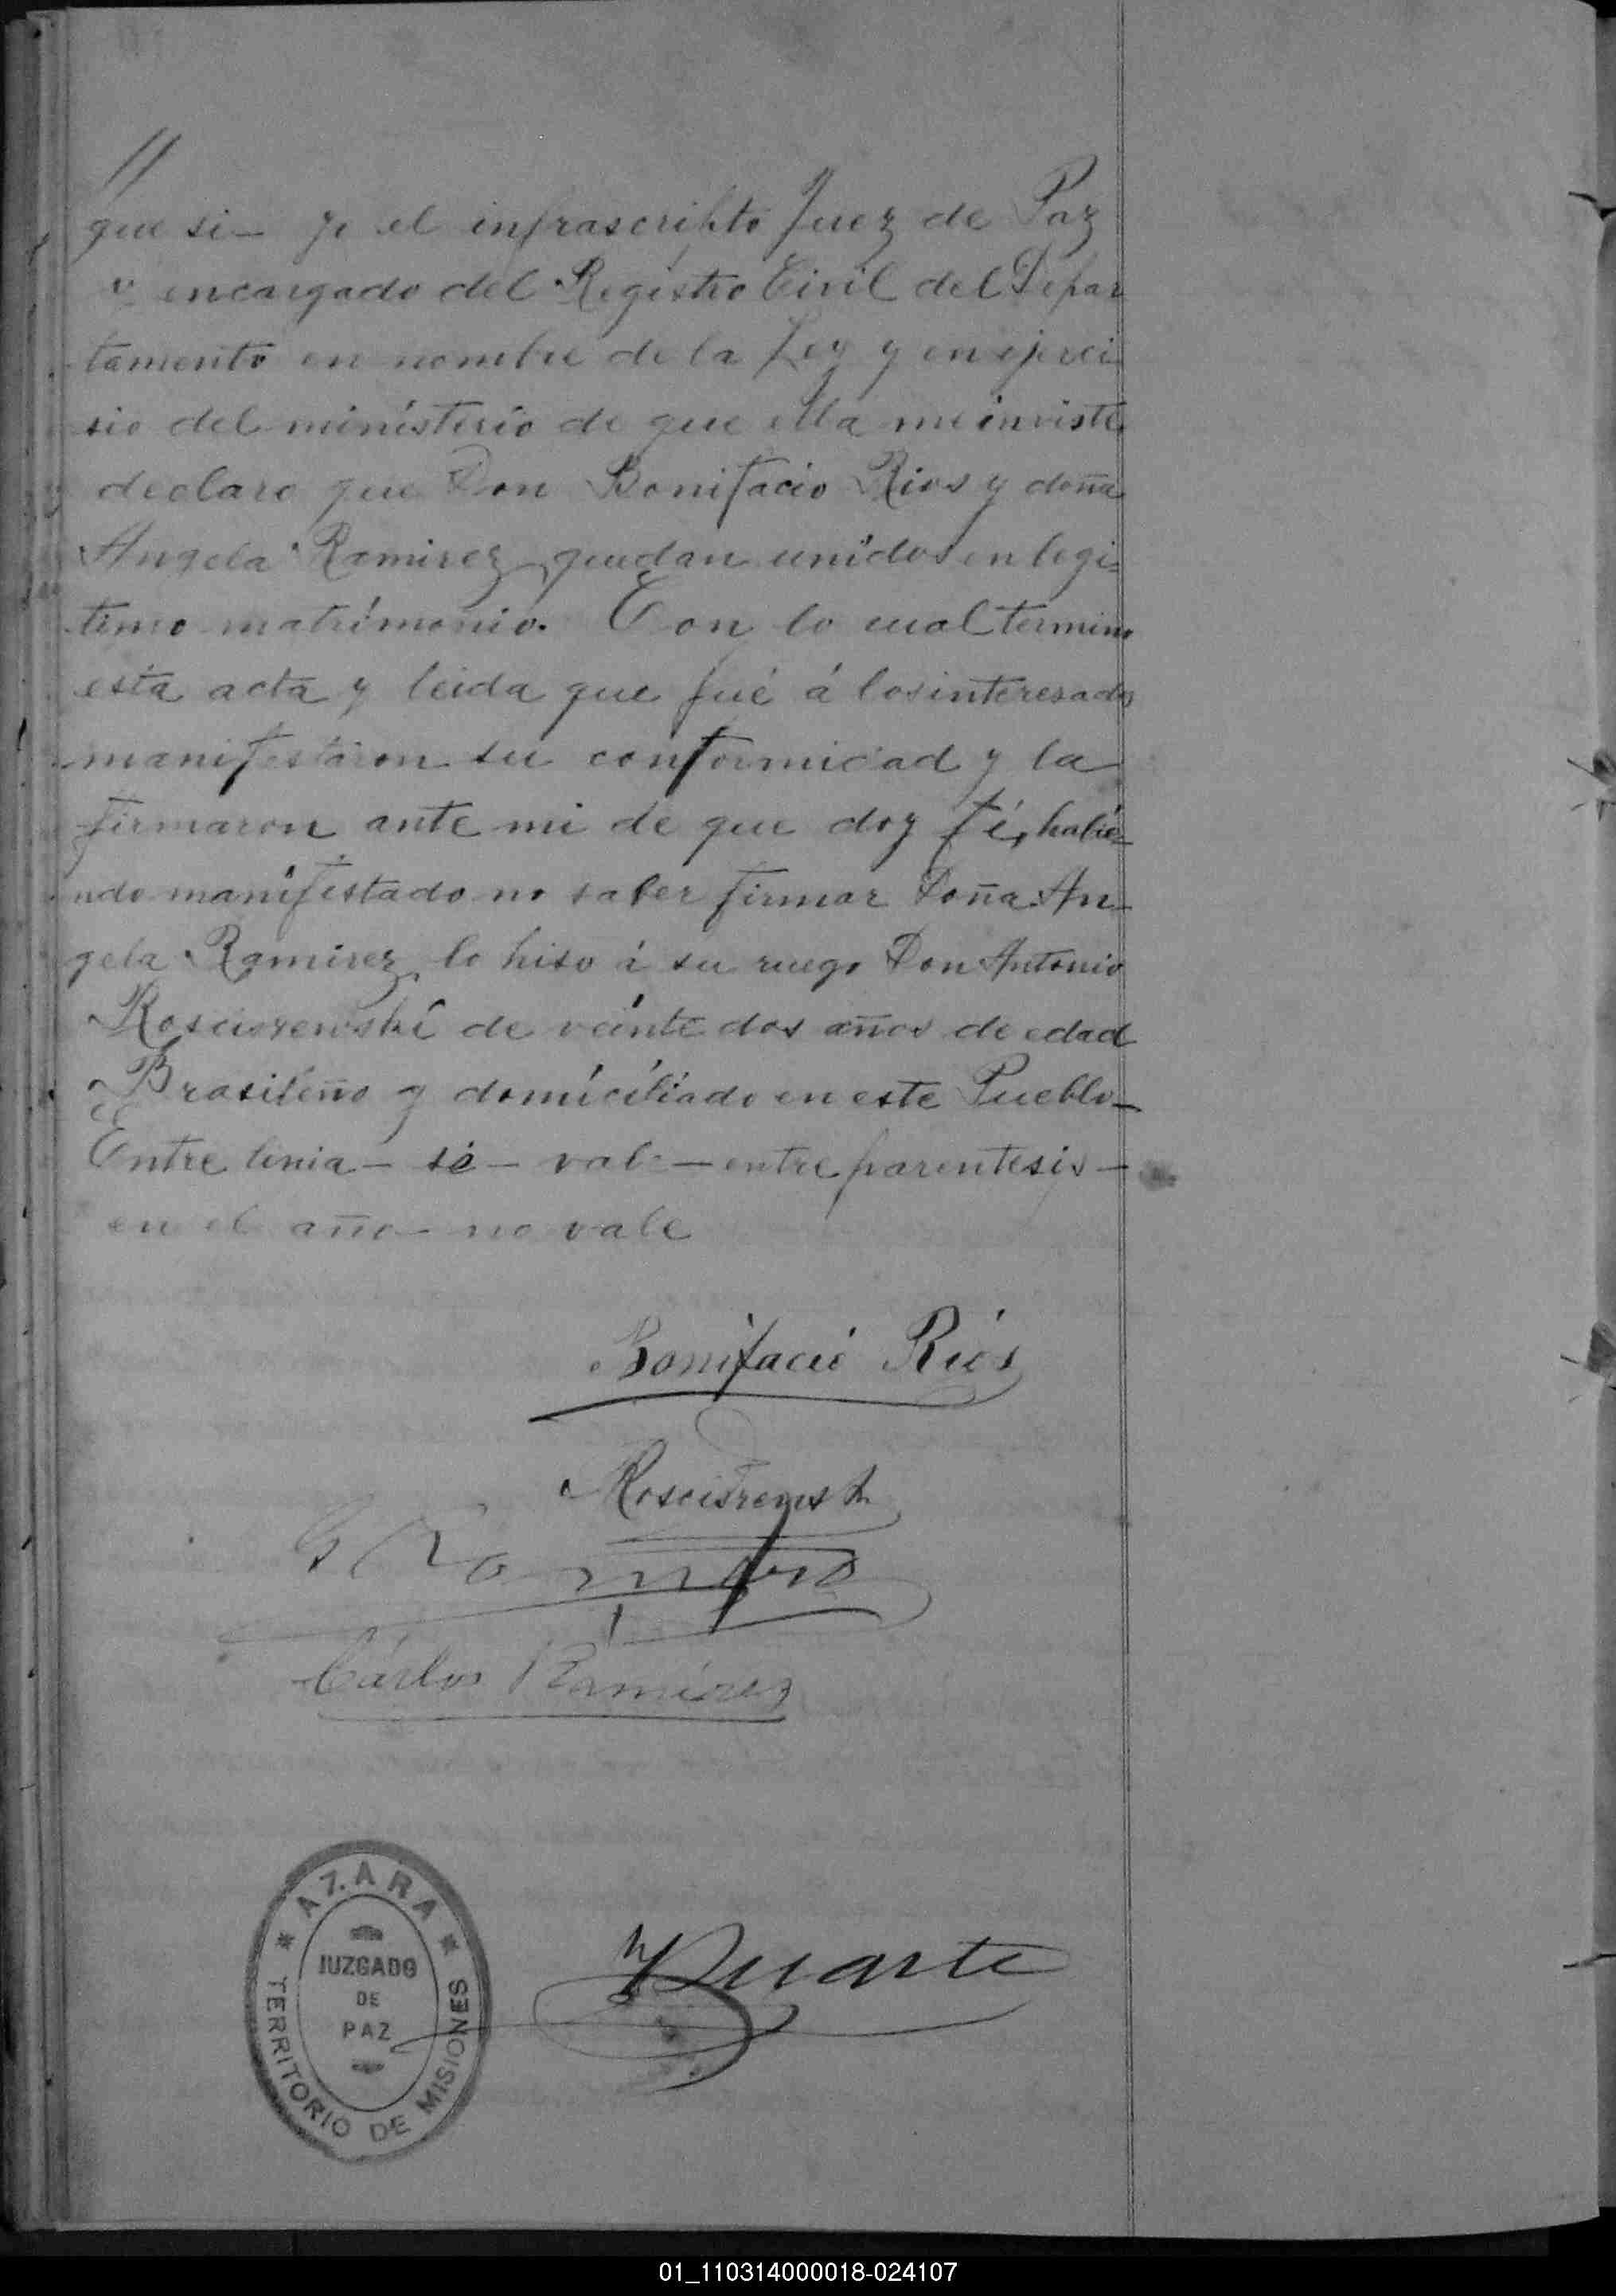 //
que si— yo el infrascripto Juez de Paz
y encargado del Registro Civil del Depar
tamento en nombre de la Ley y en ejerci
sio del ministerio de que ella me inviste
declaro que Don Bonifacio Rios y doña
Angela Ramirez, quedan unidos en legi=
timo matrimonio. Con lo cual termino
esta acta y leida que fué á los interesados
manifestaron su conformidad y la
firmaron ante mi de que doy fé, habie=
ndo manifestado no saber firmar Doña An=
gela Ramirez, lo hiso á su ruego Don Antonio
Rosciszewski de veinte dos años de edad
Brasileño y domiciliado en este Pueblo—
Entre linia — si — vale — entre parentesis —
en el año — no vale
Bonifacio Rios
Rosciszewski
Carlos Ramirez
* AZARA *
JUZGADO
DE
PAZ
TERRITORIO DE MISIONES
Duarte
01_110314000018-024107